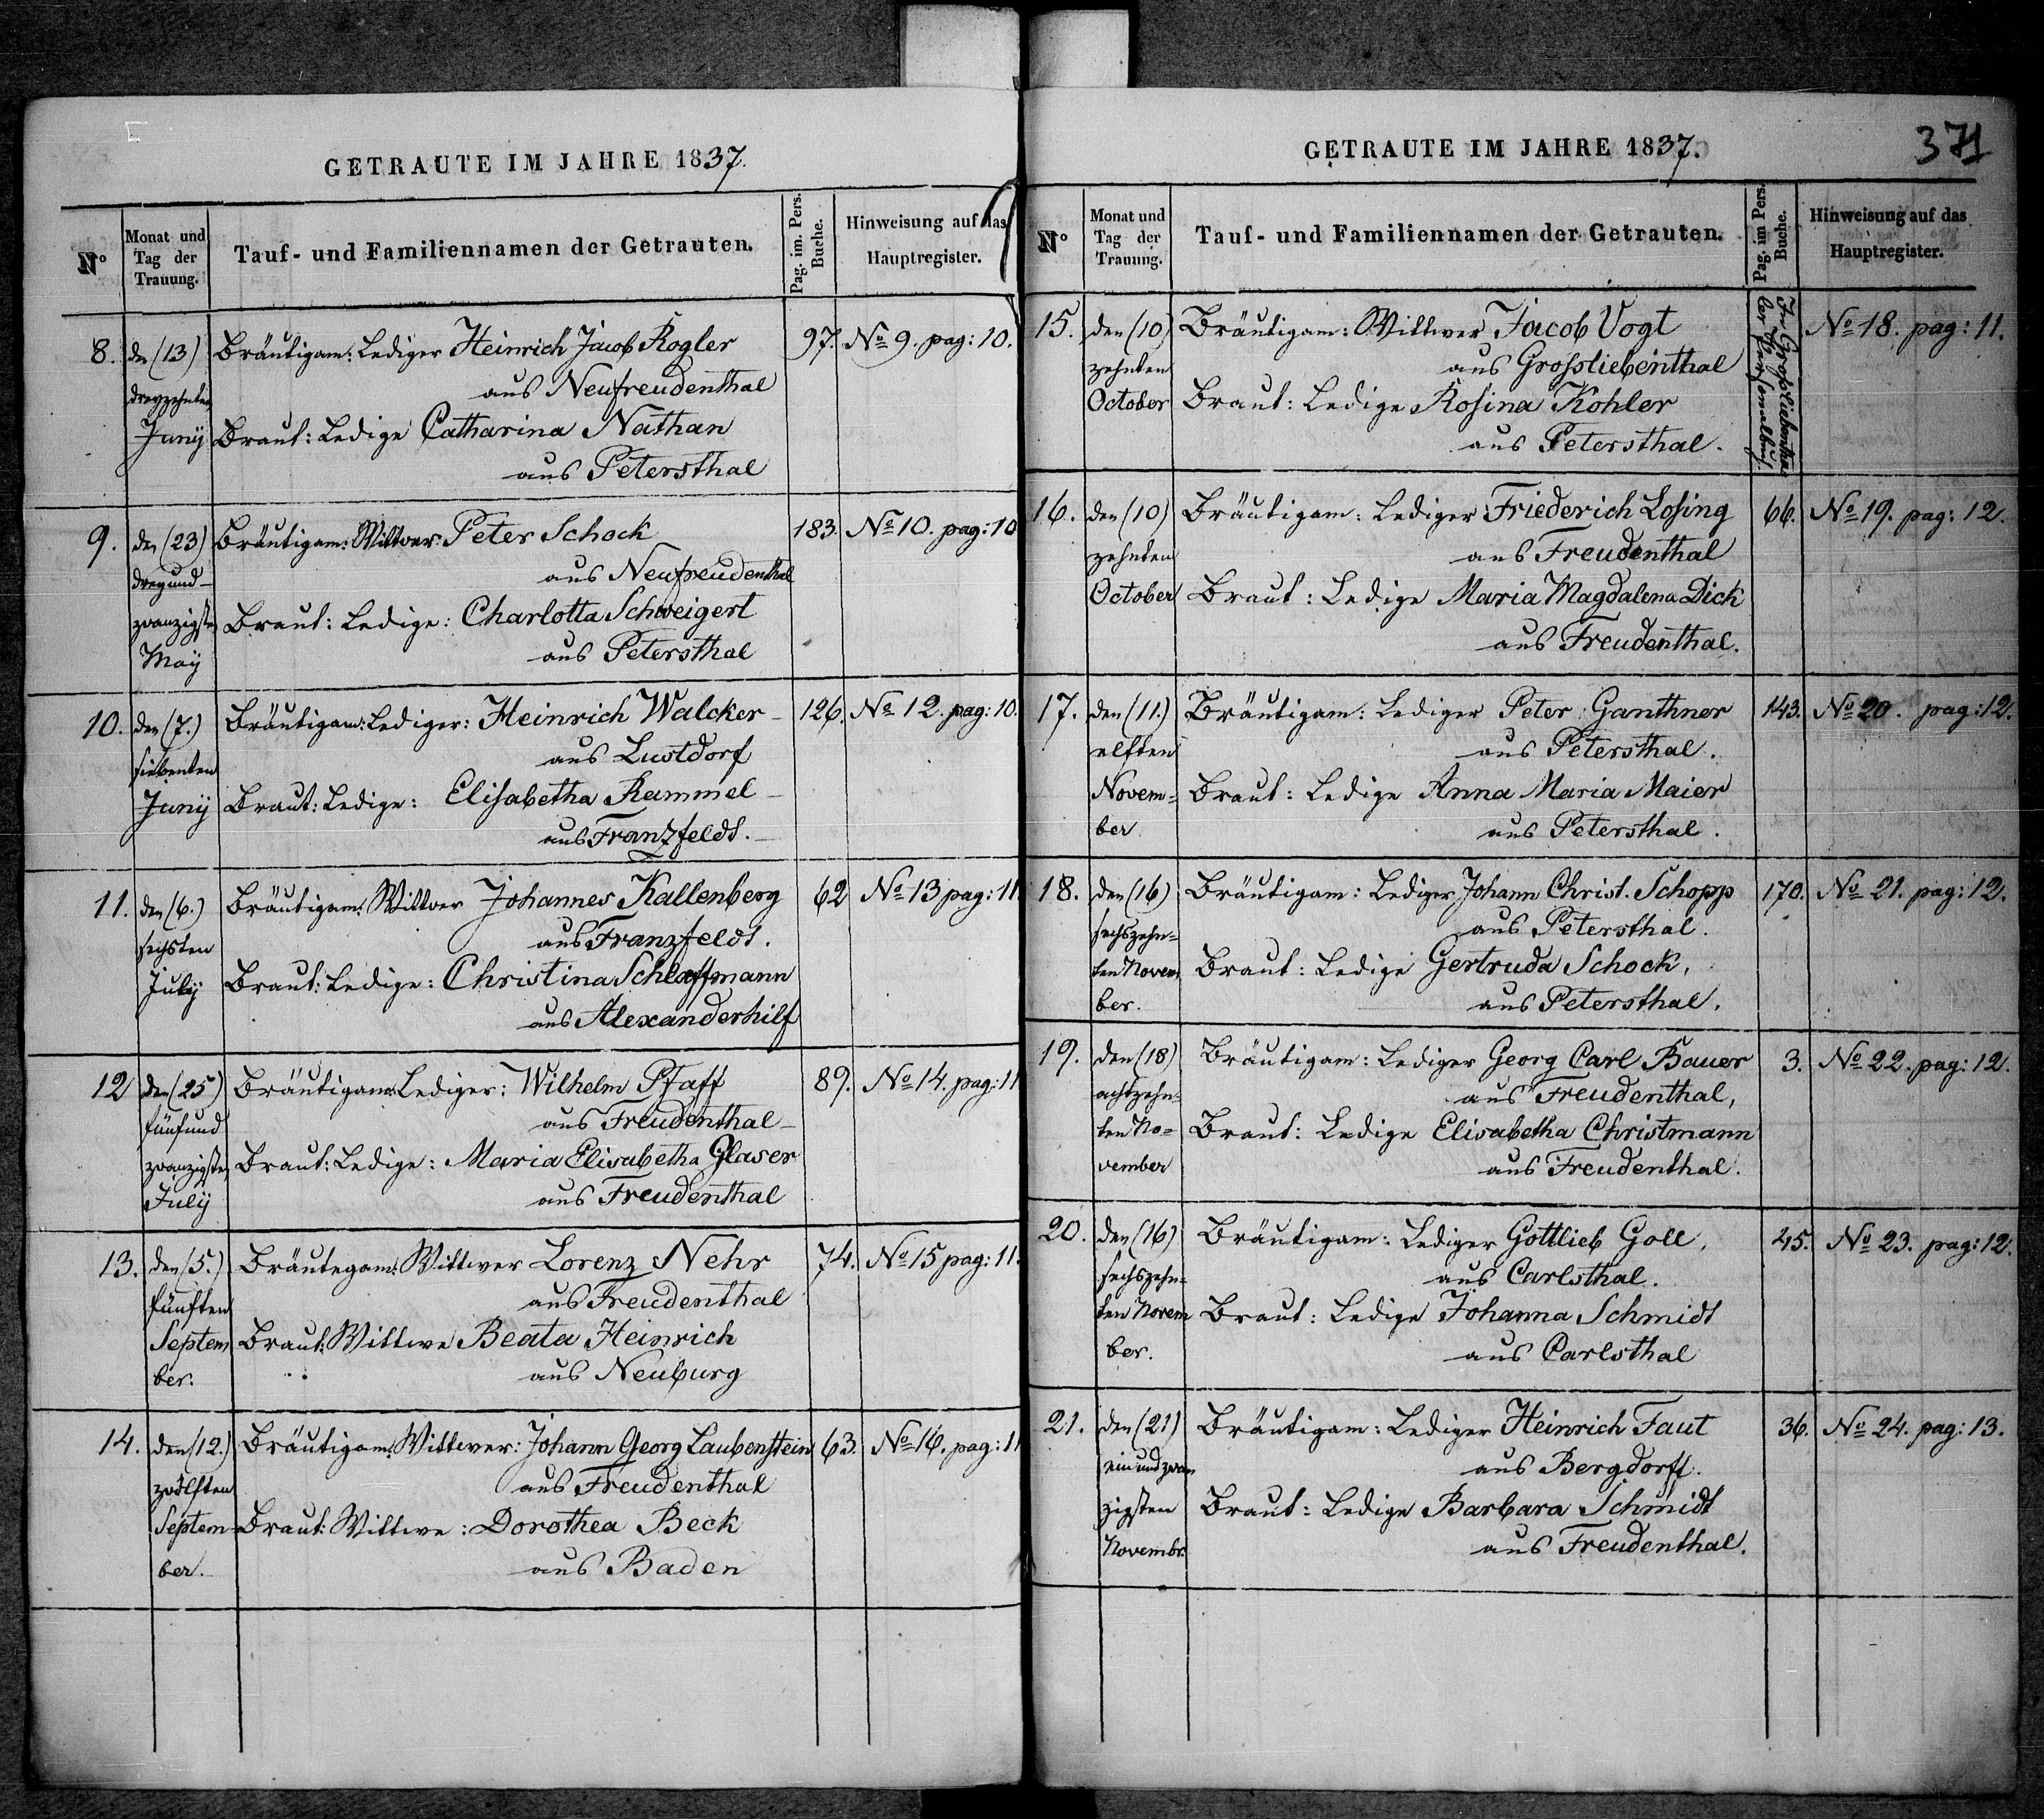 GETRAUTE IM JAHRE 1837.
No
Monat und Tag der Trauung.
Tauf- und Familiennamen der Getrauten.
Pag. im. Pers. Buche.
Hinweisung auf das Hauptregister.
8. den (13) Bräutigam: Lediger Heinrich Jacob Kogler 97. No 9. pag: 10.
dreyzehnten aus Neufreudenthal
Juny Braut: Ledige Catharina Nathan
aus Petersthal
9. den (23) Bräutigam: Wittwer: Peter Schock 183. No 10. pag: 10
dreyund- aus Neufreudenthal
zwanzigsten Braut: Ledige: Charlotta Schweigert
May aus Petersthal
10. den (7.) Bräutigam: Lediger: Heinrich Walcker 126. No 12. pag: 10.
siebenten aus Lustdorf
Juny Braut: Ledige: Elisabetha Rammel
aus Franzfeldt.
11. den (6.) Bräutigam: Wittwer Johannes Kallenberg 62 No 13 pag: 11
sechsten aus Franzfeldt.
July Braut: Ledige: Christina Schlaffmann
aus Alexanderhilf
12 den (25) Bräutigam: Lediger: Wilhelm Pfaff 89. No 14. pag: 11
fünfund aus Freudenthal
zwanzigsten Braut: Ledige: Maria Elisabetha Glaser
July aus Freudenthal
13. den (5.) Bräutegam: Wittwer Lorenz Nehr 74. No 15 pag: 11.
fünften aus Freudenthal
Septem Braut: Wittwe Beata Heinrich
ber. aus Neuburg
14. den (12.) Bräutigam: Wittwer: Johann Georg Laubenstein 63. No 16. pag: 11
zwölften aus Freudenthal
Septem Braut: Wittwe: Dorothea Beck
ber. aus Baden
GETRAUTE IM JAHRE 1837.
371
No
Monat und Tag der Trauung.
Tauf- und Familiennamen der Getrauten.
Pag. im Pers. Buche.
Hinweisung auf das Hauptregister.
15. den (10) Bräutigam: Wittwer Jacob Vogt No 18. pag: 11.
zehnten aus Grossliebenthal
October Braut: Ledige Rosina Kohler
aus Petersthal.
Im Großliebentha
ler Personalbuch.
16. den (10) Bräutigam: Lediger Friederich Losing 66. No 19. pag: 12.
zehnten aus Freudenthal
October Braut: Ledige Maria Magdalena Dick
aus Freudenthal.
17. den (11.) Bräutigam: Lediger Peter Ganthner 143. No 20. pag: 12.
elften aus Petersthal.
Novem= Braut: Ledige Anna Maria Maier
ber. aus Petersthal.
18. den (16) Bräutigam: Lediger Johann Christ. Schopp 170. No 21. pag: 12.
sechszehn= aus Petersthal.
ten Novem Braut: Ledige Gertruda Schock,
ber. aus Petersthal.
19. den (18) Bräutigam: Lediger Georg Carl Bauer 3. No 22. pag: 12.
achtzehn= aus Freudenthal,
ten No= Braut: Ledige Elisabetha Christmann
vember aus Freudenthal.
20. den (16) Bräutigam: Lediger Gottlieb Goll, 45. No 23. pag: 12.
sechszehn= aus Carlsthal.
ten Novem Braut: Ledige Johanna Schmidt
ber. aus Carlsthal
21. den (21) Bräutigam: Lediger Heinrich Faut 36. No 24. pag: 13.
ein und zwan aus Bergdorff.
zigsten Braut: Ledige Barbara Schmidt
Novembr. aus Freudenthal.